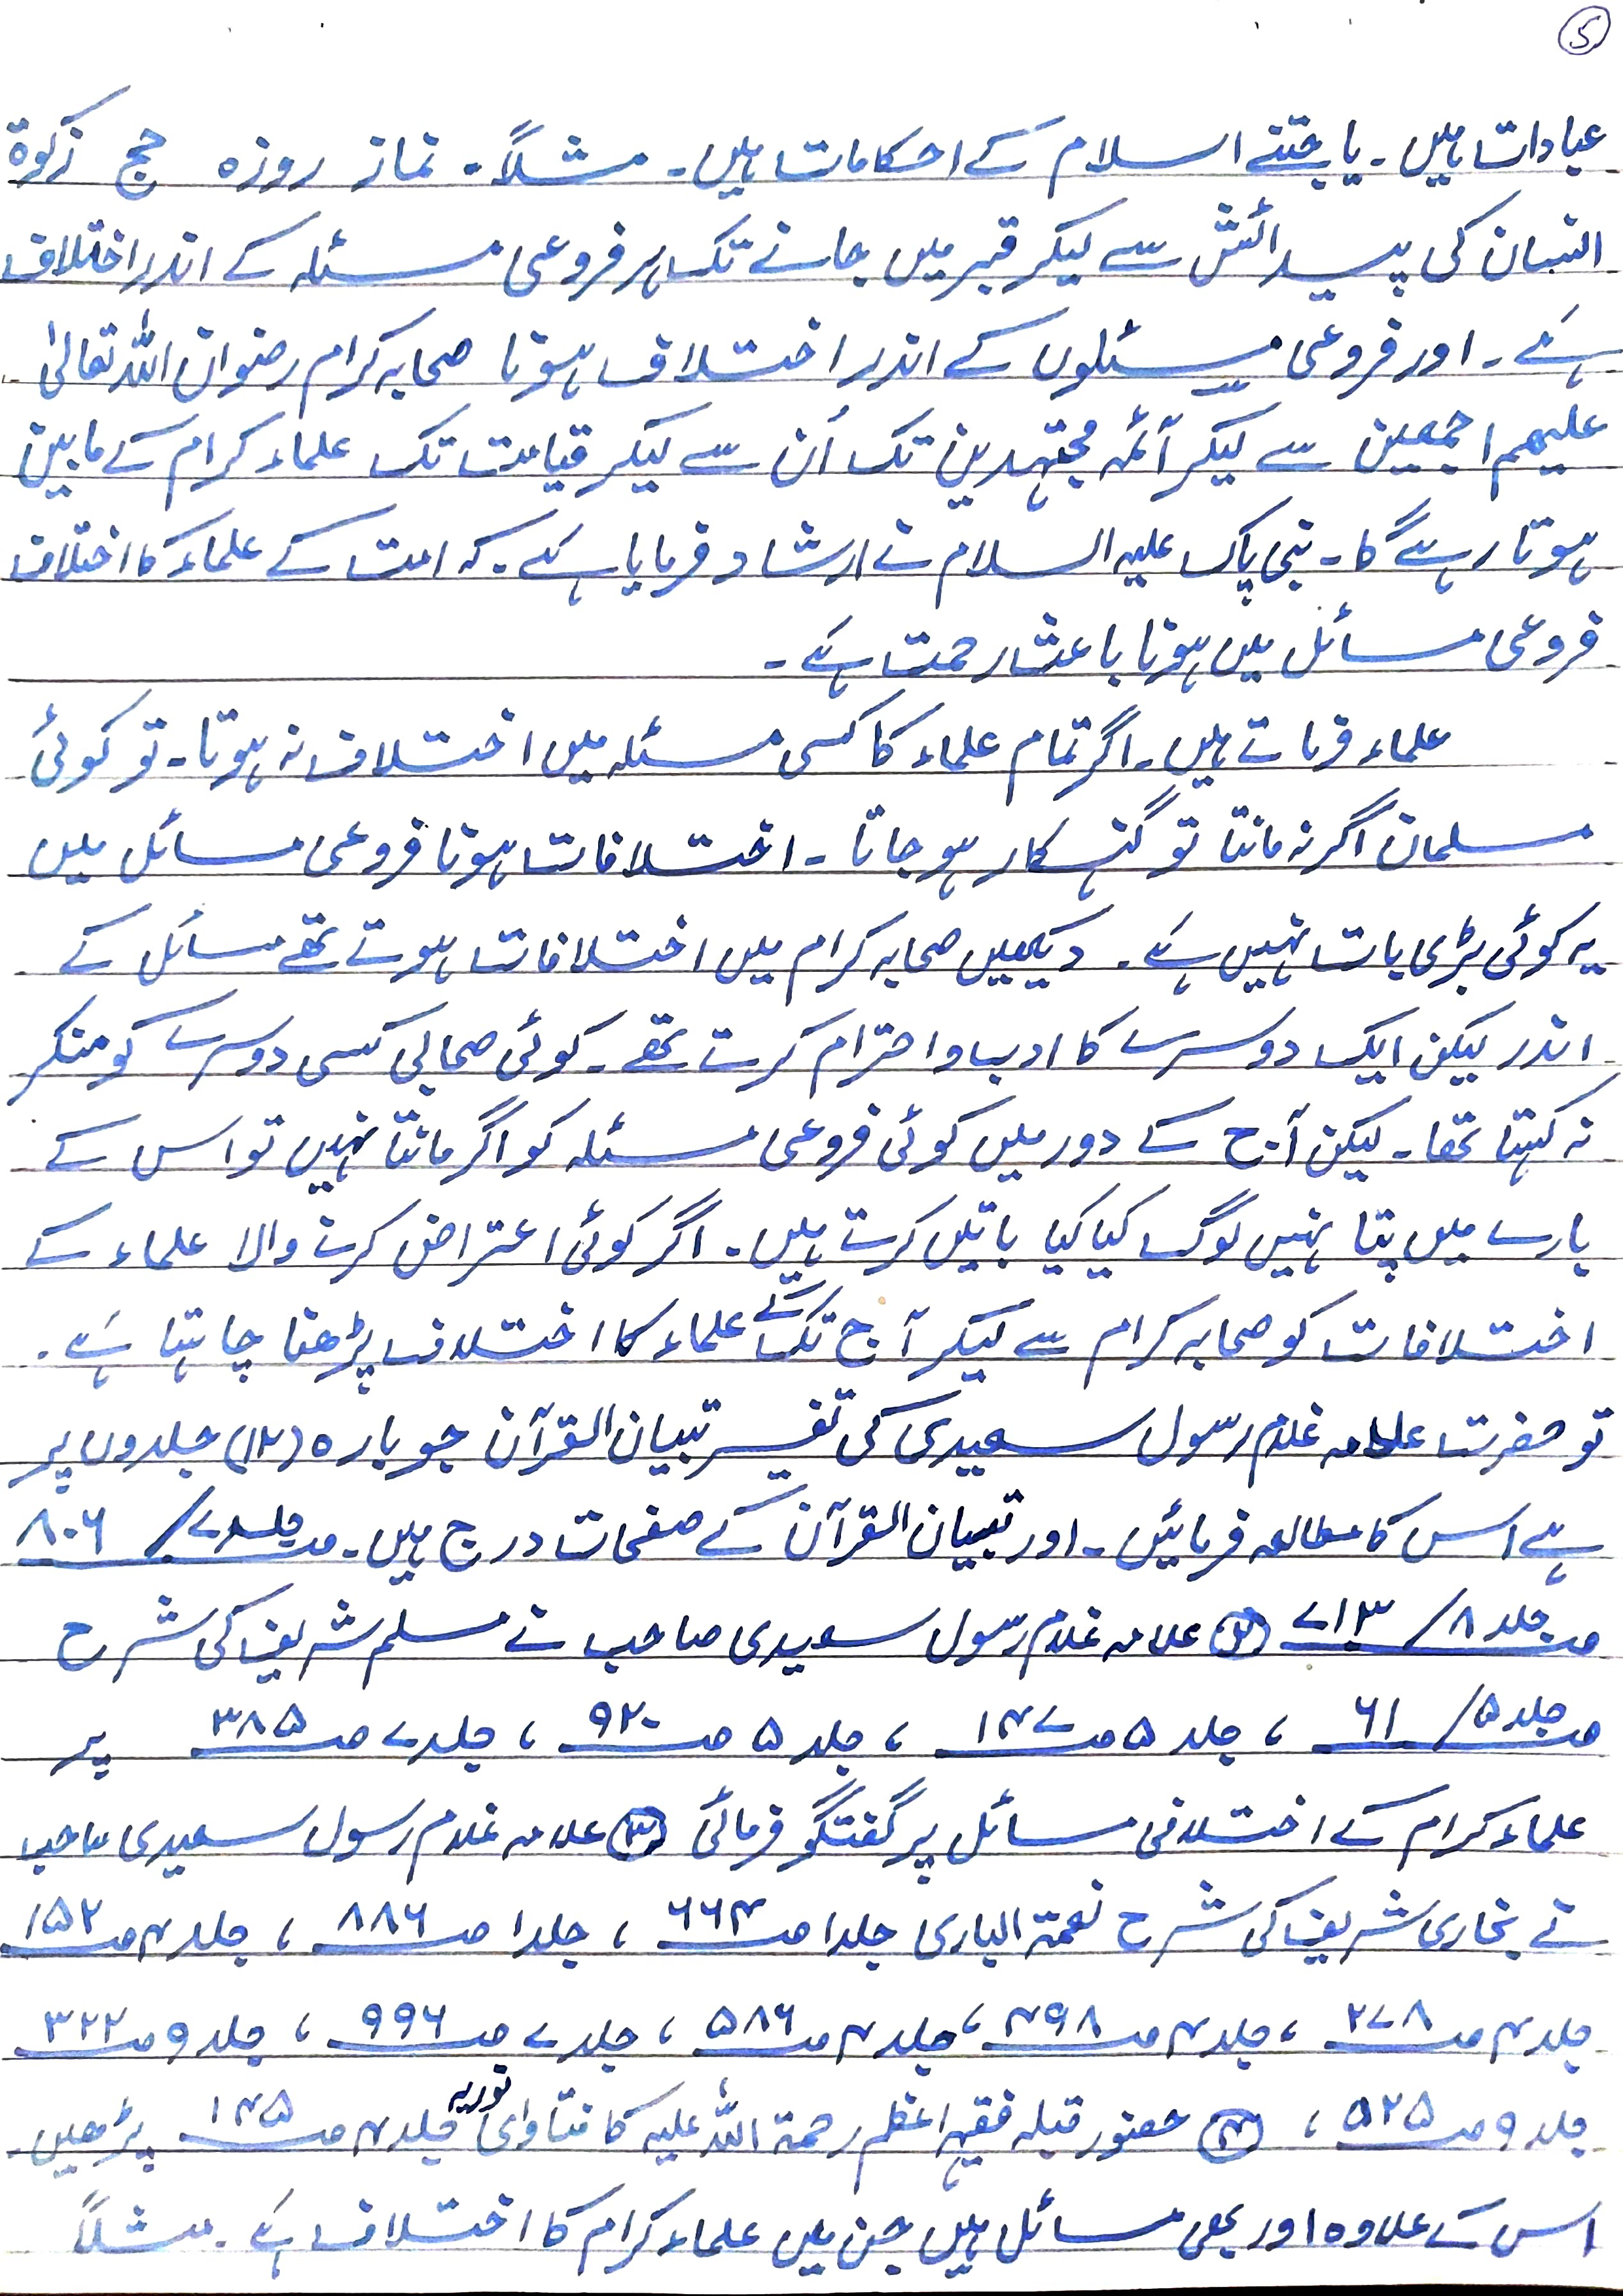 5
عبادات ہیں۔ یا جتنے اسلام کے احکامات ہیں۔ مثلاً۔ نماز روزہ حج زکوۃ
انسان کی پیدائش سے لیکر قبر میں جانے تک ہر فروعی مسئلہ کے اندر اختلاف
ہے۔ اور فروعی مسئلوں کے اندر اختلاف ہونا صحابہ کرام رضوان اللہ تعالیٰ
علیھم اجمعین سے لیکر آئمہ مجتہدین تک اُن سے لیکر قیامت تک علماء کرام کے مابین
ہوتا رہے گا۔ نبی پاک علیہ السلام نے ارشاد فرمایا ہے۔ کہ امت کے علماء کا اختلاف
فروعی مسائل میں ہونا باعث رحمت ہے۔
علماء فرماتے ہیں۔ اگر تمام علماء کا کسی مسئلہ میں اختلاف نہ ہوتا۔ تو کوئی
مسلمان اگر نہ مانتا تو گنہکار ہو جاتا۔ اختلافات ہونا فروعی مسائل میں
یہ کوئی بڑی بات نہیں ہے۔ دیکھیں صحابہ کرام میں اختلافات ہوتے تھے مسائل کے
اندر لیکن ایک دوسرے کا ادب واحترام کرتے تھے۔ کوئی صحابی کسی دوسرے کو منکر
نہ کہتا تھا۔ لیکن آج کے دور میں کوئی فروعی مسئلہ کو اگر مانتا نہیں تو اس کے
بارے میں پتا نہیں لوگ کیا کیا باتیں کرتے ہیں۔ اگر کوئی اعتراض کرنے والا علماء کے
اختلافات کو صحابہ کرام سے لیکر آج تک کے علماء کا اختلاف پڑھنا چاہتا ہے۔
تو حضرت علامہ غلام رسول سعیدی کی تفسیر تبیان القرآن جو بارہ (۱۲) جلدوں پر
ہے اس کا مطالعہ فرمائیں۔ اور تبیان القرآن کے صفحات درج ہیں۔ جلد ۷/ صـ ۸۰۶
جلد ۸/ صـ ۷۱۳ (۲) علامہ غلام رسول سعیدی صاحب نے مسلم شریف کی شرح
جلد ۵/ صـ ۶۱ ، جلد ۵ صـ ۱۴۷ ، جلد ۵ صـ ۹۲۰ ، جلد ۷ صـ ۳۸۵ پر
علماء کرام کے اختلافی مسائل پر گفتگو فرمائی (۳) علامہ غلام رسول سعیدی صاحب
نے بخاری شریف کی شرح نعمۃ الباری جلد ۱ صـ ۶۶۴ ، جلد ۱ صـ ۸۸۶ ، جلد ۴ صـ ۱۵۲
جلد ۴ صـ ۲۷۸ ، جلد ۴ صـ ۴۹۸ ، جلد ۴ صـ ۵۸۶ ، جلد ۷ صـ ۹۹۶ ، جلد ۹ صـ ۳۲۲
جلد ۹ صـ ۵۲۵ ، (۴) حضور قبلہ فقیہ اعظم رحمۃ اللہ علیہ کا فتاوای نوریہ جلد ۴ صـ ۱۴۵ پڑھیں۔
اس کے علاوہ اور بھی مسائل ہیں جن میں علماء کرام کا اختلاف ہے۔ مثلاً